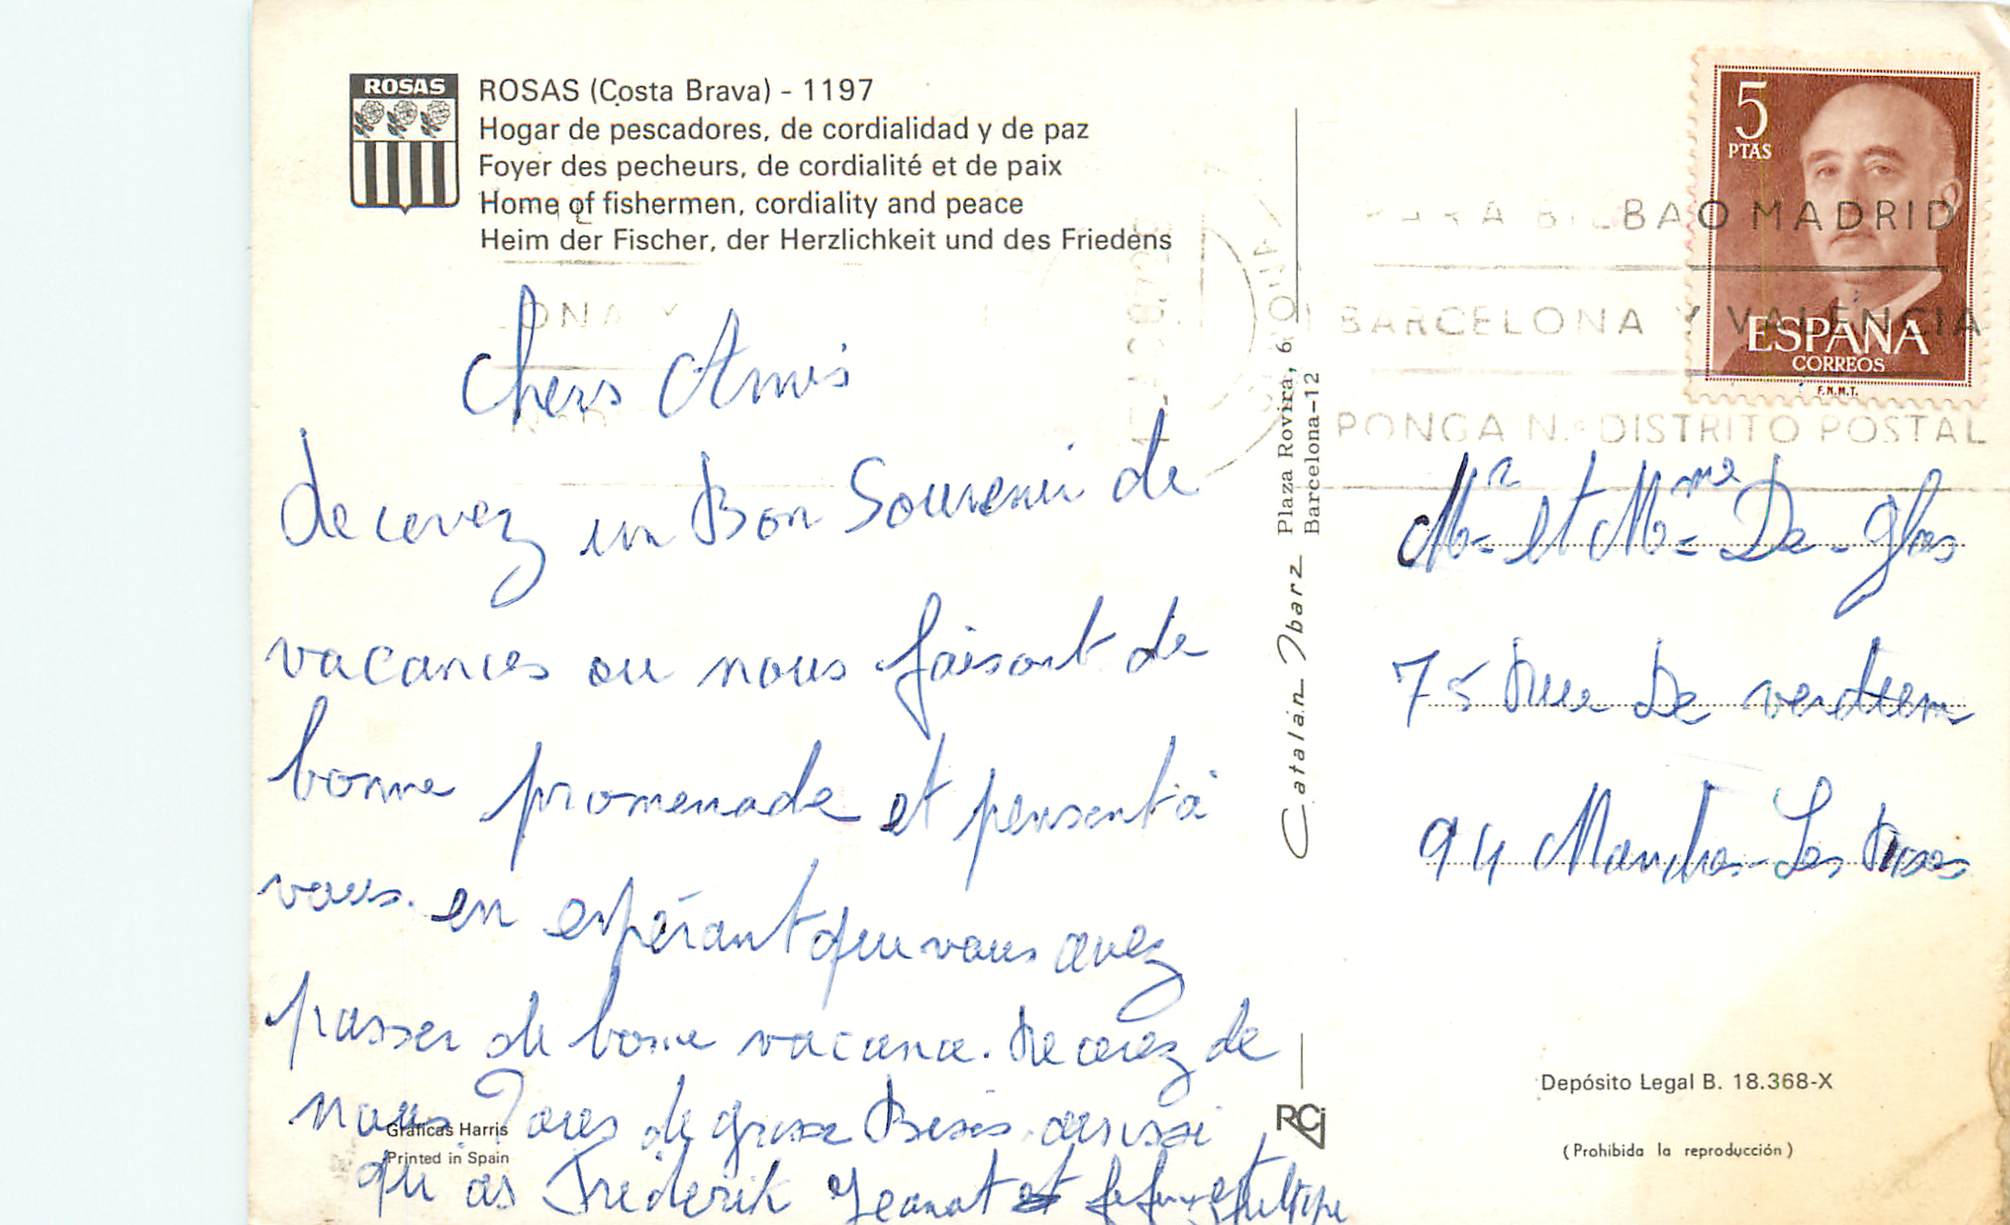 ROSAS
ROSAS (Costa Brava) - 1197
Hogar de pescadores, de cordialidad y de paz
Foyer des pecheurs, de cordialité et de paix
Home of fishermen, cordiality and peace
Heim der Fischer, der Herzlichkeit und des Friedens
Chers Amis
Recevez un Bon Souvenir de
vacances ou nous faisont de
bonne promenade et pensent à
vous. en espérant que vous avez
passer de bonne vacance. Recevez de
nous Tous de grosse Bises. aussi
qu as Fréderik Jeanot et
Gráficas Harris
Printed in Spain
Catalán Ibarz Plaza Rovira, 6
Barcelona-12
RCi
5
PTAS
ESPAÑA
CORREOS
F.N.M.T.
BILBAO MADRID
BARCELONA Y VALENCIA
PONGA N.º DISTRITO POSTAL
ONA Y
Mr et Mme De-Glas
75 Rue De verdun
94 Mandres-Les Roses
Depósito Legal B. 18.368-X
(Prohibida la reproducción)